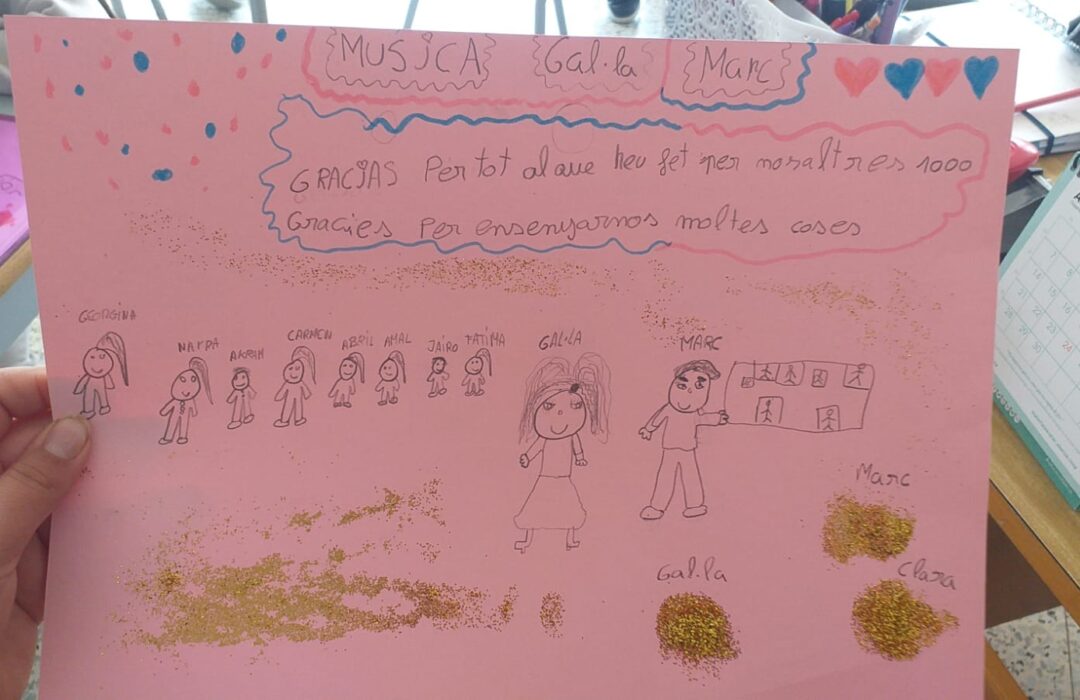 MUSICA Gal·la Marc
GRACIAS Per tot al que heu fet per nosaltres 1000
Gracies Per ensenyarnos moltes coses
GEORGINA
NAYRA
AKRAM
CARMEN
ABRIL
AMAL
JAIRO
FATIMA
GAL·LA
MARC
Marc
Gal.la
Clara